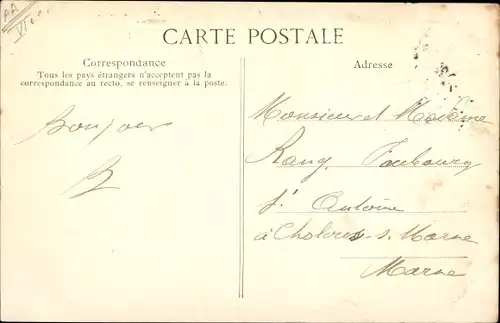 CARTE POSTALE
Correspondance
Tous les pays étrangers n'acceptent pas la
correspondance au recto, se renseigner à la poste.
Adresse
Bonjour
Monsieur et Madame
Faubourg
St Antoine
à s. Marne
Marne